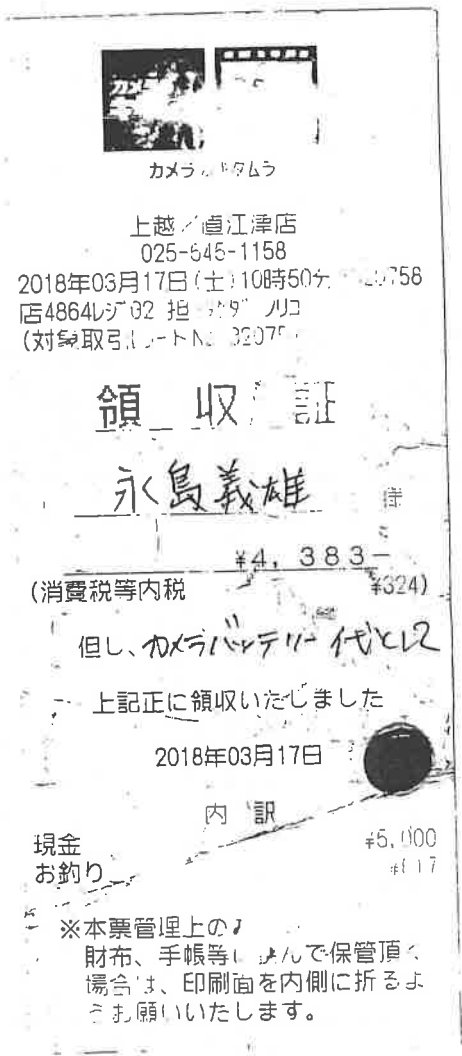 カメラ
カメラ タムラ
上越/直江津店
025-545-1158
2018年03月17日(土)10時50分 758
店4864レジ02 担 ノリコ
(対象取引レートNo 32075
領収証
永島義雄 様
¥4,383-
(消費税等内税 ¥324)
但し、カメラバッテリー代として
上記正に領収いたしました
2018年03月17日
内訳
現金 ¥5,000
お釣り ¥617
※本票管理上の
財布、手帳等に挟んで保管頂く
場合は、印刷面を内側に折るよ
うお願いいたします。